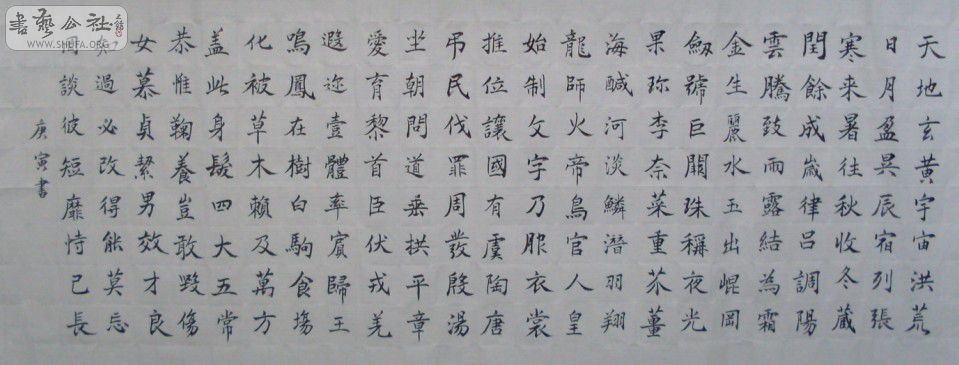 天地玄黃宇宙洪荒
日月盈昃辰宿列張
寒来暑往秋收冬藏
閏餘成歲律吕調陽
雲騰致雨露結為霜
金生麗水玉出崐岡
劔號巨闕珠稱夜光
果珎李奈菜重芥薑
海醎河淡鱗潛羽翔
龍師火帝鳥官人皇
始制文字乃服衣裳
推位讓國有虞陶唐
吊民伐罪周發殷湯
坐朝問道垂拱平章
愛育黎首臣伏戎羌
遐迩壹體率賓歸王
鳴鳳在樹白駒食場
化被草木賴及萬方
盖此身髮四大五常
恭惟鞠養豈敢毀傷
女慕貞絜男效才良
過必改得能莫忘
罔談彼短靡恃己長
庚寅書
書藝公社
WWW.SHUFA.ORG